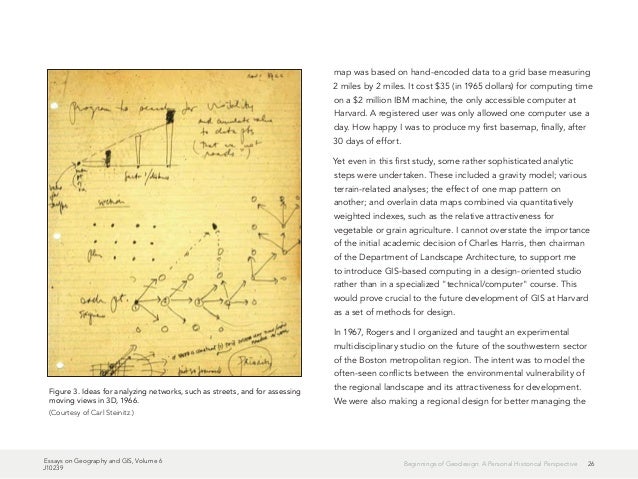 Nov 1966
program to search for visibility
and cumulate value
to data pts
(that are "not
roads")
factor 1/distance
section
plan
each pt.
Figure 3. Ideas for analyzing networks, such as streets, and for assessing
moving views in 3D, 1966.
(Courtesy of Carl Steinitz.)
map was based on hand-encoded data to a grid base measuring
2 miles by 2 miles. It cost $35 (in 1965 dollars) for computing time
on a $2 million IBM machine, the only accessible computer at
Harvard. A registered user was only allowed one computer use a
day. How happy I was to produce my first basemap, finally, after
30 days of effort.
Yet even in this first study, some rather sophisticated analytic
steps were undertaken. These included a gravity model; various
terrain-related analyses; the effect of one map pattern on
another; and overlain data maps combined via quantitatively
weighted indexes, such as the relative attractiveness for
vegetable or grain agriculture. I cannot overstate the importance
of the initial academic decision of Charles Harris, then chairman
of the Department of Landscape Architecture, to support me
to introduce GIS-based computing in a design-oriented studio
rather than in a specialized "technical/computer" course. This
would prove crucial to the future development of GIS at Harvard
as a set of methods for design.
In 1967, Rogers and I organized and taught an experimental
multidisciplinary studio on the future of the southwestern sector
of the Boston metropolitan region. The intent was to model the
often-seen conflicts between the environmental vulnerability of
the regional landscape and its attractiveness for development.
We were also making a regional design for better managing the
Essays on Geography and GIS, Volume 6
J10239
Beginnings of Geodesign: A Personal Historical Perspective 26